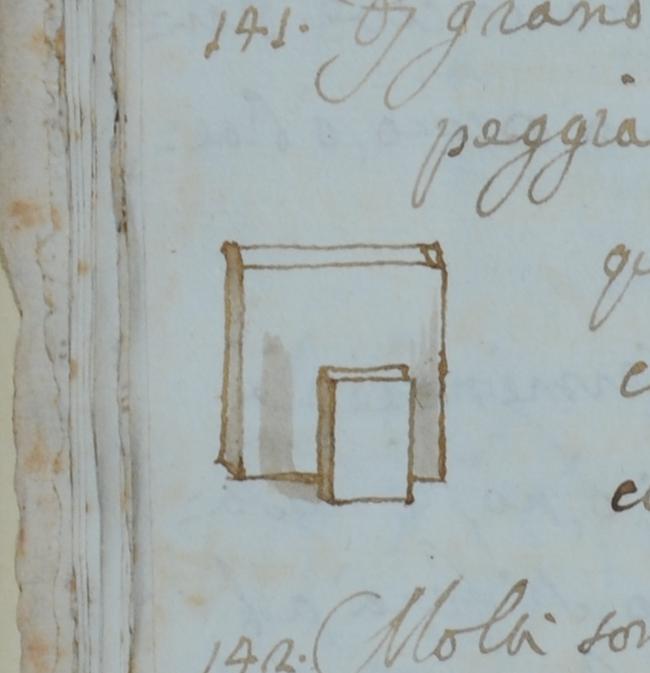 141. Di grano
peggia
qu
c
142. Molti son